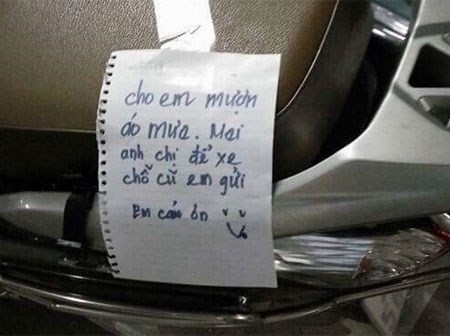 cho em mượn
áo mưa. Mai
anh chị để xe
chỗ cũ em gửi
Em cảm ơn